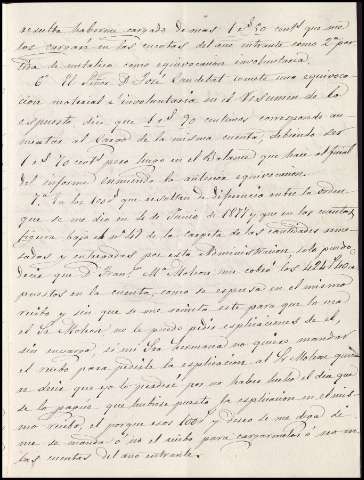 resulta haberme cargado de mas 1 rs 20 cents que me
los cargará en las cuentas del año entrante como 2ª par
tida de metalico como equivocacion involuntaria.
6 El Señor D José Landebat comete una equivoca
cion material é involuntaria en el Resumen de lo
espuesto dice que 1 rs 70 centimos corresponde au
mentar al Cargo de la misma cuenta, debiendo ser
1 rs 70 cents pero luego en el Balance que hace al final
del informe enmienda la anterior equivocacion.
7ª En los 100 rs que resultan de diferencia entre la orden
que se me dio en 4 de Junio de 1877 y que en las cuentas
figura bajo el nº 47 de la carpeta de las cantidades reme
sadas y entregadas por esta Administracion, solo puedo
decir que D Franco Mª Moliner me cobró los
puestos en la cuenta, como se espresa en el mismo
recibo y sin que se me remita este para que la vea
el Sr Moliner no le puedo pedir esplicaciones de él,
sin embargo, si mi Sra hermana no quiere mandar
el recibo para pedirle la esplicacion al Sr Moliner quiere
decir que yo lo perderé por no haber hecho el dia que
se lo pagué que hubiese puesto la esplicacion en el mis
mo recibo, el porque esos 100 rs y deseo se me diga de
me se manda ó no el recibo para cargarmelos ó no en
las cuentas del año entrante.